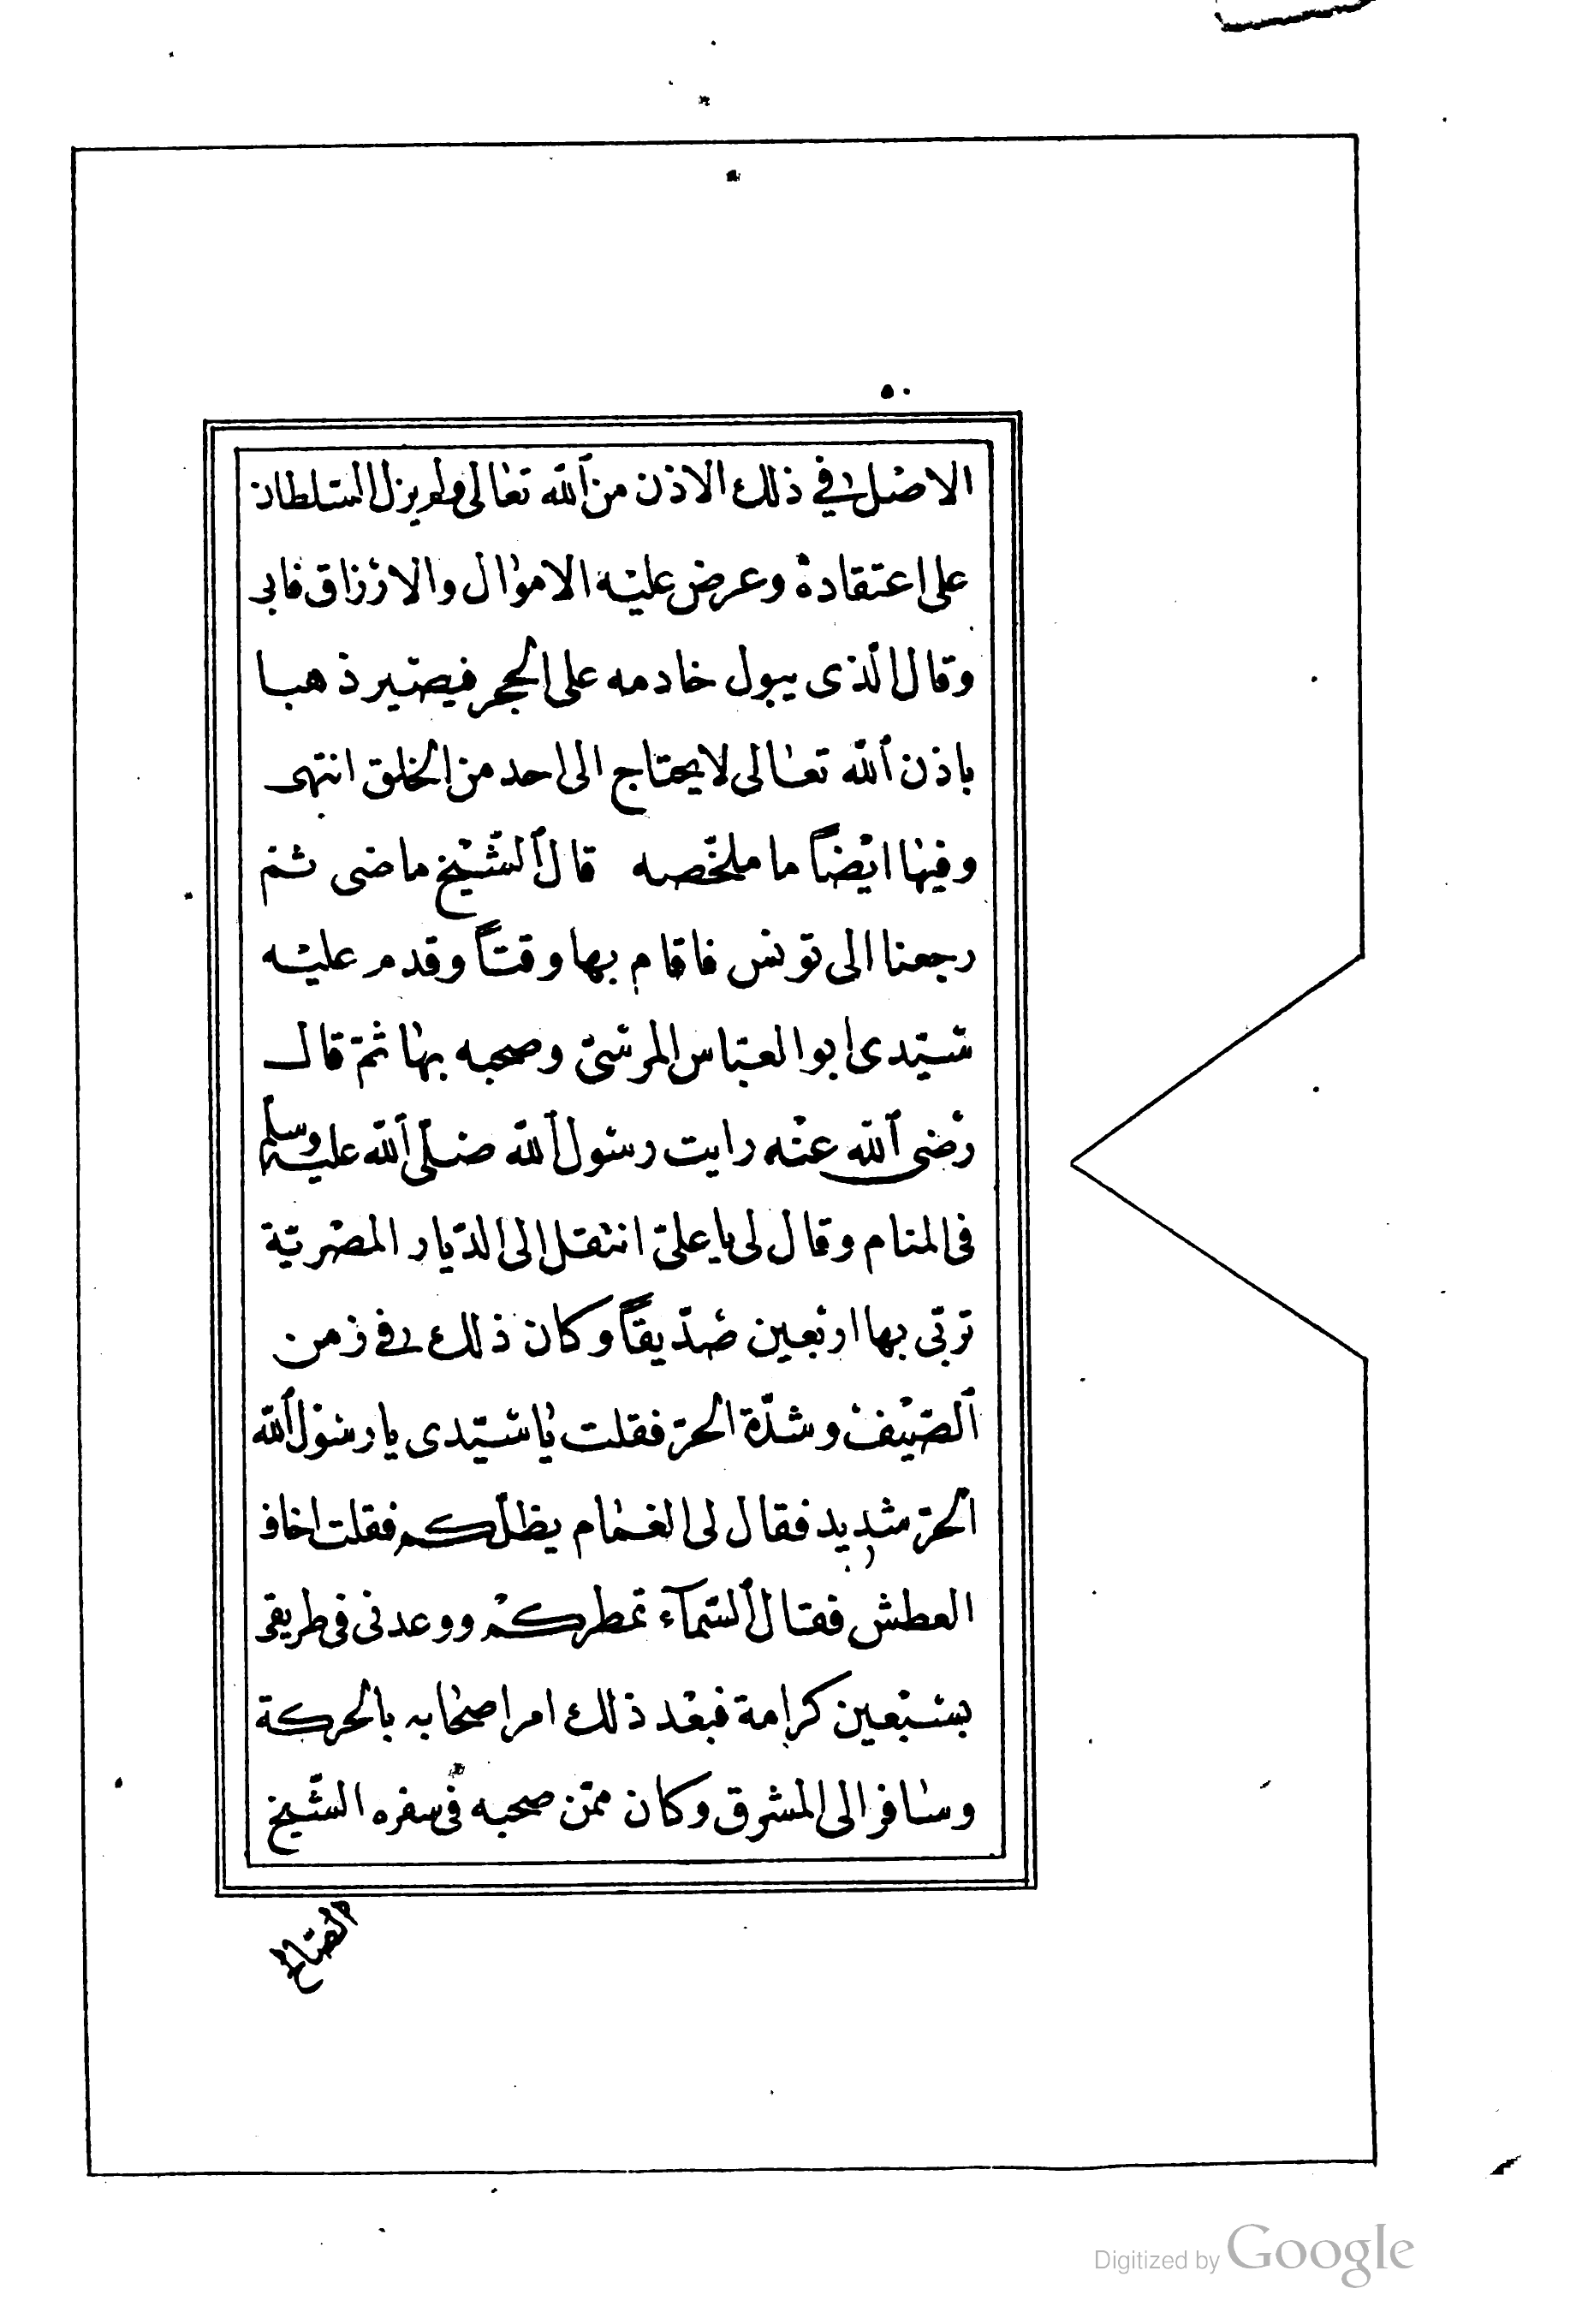 ٥٠
الاصْل في ذلك الاذن من ٱلله تعٰالى ولم يزل السّلطان
على اعتقادهْ وعرض عليْه الاموٰال والارْزاق فابى
وقال الّذى يبول خادمه على الحجر فيصيّر ذهبا
باذن ٱلله تعٰالى لا يحتاج الى احد من الخلق انتهى
وفيهٰا ايْضاً ما ملخّصه قال ٱلشّيْخ ماضى ثم
رجعنا الى تونس فاقام بها وقتاً وقدم عليْه
سيّدى ابو العبّاس المرسىّ وصحبه بهٰا ثمّ قال
رضى ٱلله عنْه رايت رسول ٱلله صلّى ٱلله عليه وسلم
فى المنام وقال لى يا علىّ انتقل الى الدّيار المصْريّة
تربّى بها ارْبعين صدّيقاً وكان ذلك في زمن
ٱلصّيْف وشدّة الحرّ فقلت يٰا سيّدى يا رسول ٱلله
ٱلحرّ شديد فقال لى الغمٰام يظلّكم فقلت اخاف
العطش فقال ٱلسّمآء تمطركمْ ووعدنى فى طريقى
بسبْعين كرامة فبعْد ذلك امر اصحٰابه بالحركة
وسٰافر الى المشرق وكان ممّن صحبه فى سفره الشّيْخ
الصّالح
Digitized by Google